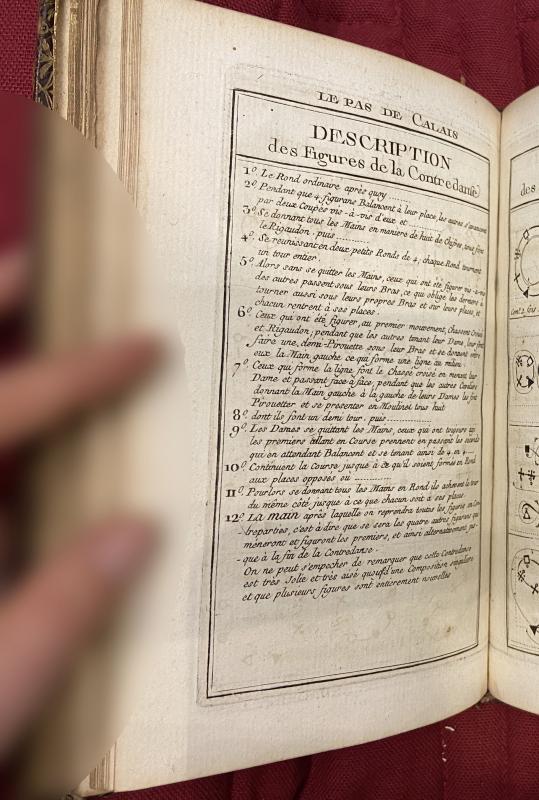 LE PAS DE CALAIS
DESCRIPTION
des Figures de la Contredanse
1º. Le Rond ordinaire après quoy ........
2º. Pendant que 4 figurans Balancent à leur place, les autres s'avancent
par deux Coupés vis-à-vis d'eux et
3º. Se donnant tous les Mains en maniere de huit de Chifre, tous font
le Rigaudon, puis ............
4º. Se reunissant en deux petits Ronds de 4, chaque Rond tournent
un tour entier.
5º. Alors sans se quitter les Mains, ceux qui ont été figurer vis-à-vis
des autres passent sous leurs Bras, ce qui oblige les derniers à
tourner aussi sous leurs propres Bras et sur leurs places, et
chacun rentrent à ses places.
6º. Ceux qui ont été figurer, au premier mouvement, Chassent Croisés
et Rigaudon; pendant que les autres tenant leur Dame, leur font
faire une demi-Pirouette sous leur Bras et se donnent entre
eux la Main gauche ce qui forme une ligne au milieu
7º. Ceux qui forme la ligne font le Chassé croisé en menant leur
Dame et passant face à face, pendant que les autres Cavaliers
donnant la Main gauche à la gauche de leurs Dames les font
Pirouetter et se presenter en Moulinet tous huit
8º. dont ils font un demi tour, puis ............
9º. Les Dames se quittant les Mains, ceux qui ont toujours été
les premiers allant en Course prennent en passant les seconds
qui en attendant Balancent et se tenant ainsi de 4 en 4 ....
10º. Continuent la Course jusque à ce qu'il soient formés en Rond
aux places opposés ou ............
11º. Pourlors se donnant tous les Mains en Rond ils achevent le tour
du même côté jusque à ce que chacun soit à ses places.
12º. La main après laquelle on reprendra toutes les figures en Con-
-treparties, c'est à dire que se sera les quatre autres figurans qui
meneront et figuront les premiers, et ainsi alternativement jus-
-que à la fin de la Contredanse.
On ne peut s'empecher de remarquer que cette Contredance
est très Jolie et très aisé quoiqu'd'une Composition singuliere
et que plusieurs figures sont entierement nouvelles
des